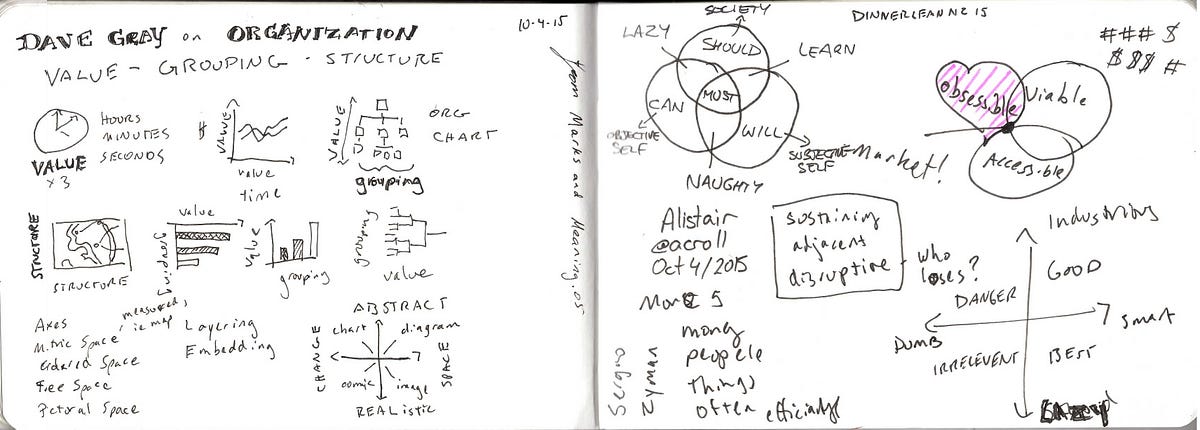 10-4-15
DAVE GRAY on ORGANIZATION
VALUE - GROUPING - STRUCTURE
HOURS
MINUTES
SECONDS
VALUE
x 3
$
VALUE
value
time
VALUE
ORG
CHART
grouping
STRUCTURE
STRUCTURE
value
grouping
value
grouping
grouping
value
Axes
Metric Space
measured,
i.e. map
Ordered Space
Free Space
Pictoral Space
Layering
Embedding
ABSTRACT
chart
diagram
CHANGE
SPACE
comic
image
REALISTIC
from Marks and Meaning.05
SOCIETY
DINNERLEANNE 15
LAZY
SHOULD
LEARN
CAN
MUST
WILL
OBJECTIVE
SELF
SUBJECTIVE
SELF
NAUGHTY
# # # $
$ $ $ #
obsessible
Viable
Accessible
Market!
Alistair
@acroll
Oct 4/2015
sustaining
adjacent
disruptive
who
loses?
More 5
money
people
things
often
efficiently
Sergio
Zyman
Industrious
GOOD
DANGER
Smart
DUMB
IRRELEVENT
BEST